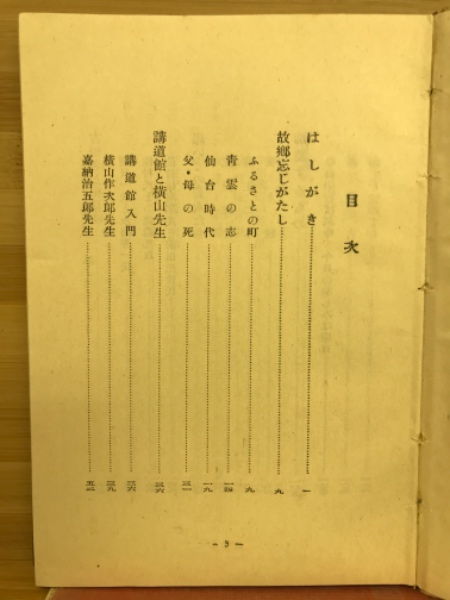 目次
はしがき……一
故郷忘じがたし……九
ふるさとの町……九
青雲の志……一四
仙台時代……一九
父・母の死……三一
講道館と横山先生……三六
講道館入門……三六
横山作次郎先生……三九
嘉納治五郎先生……五二
— 3 —